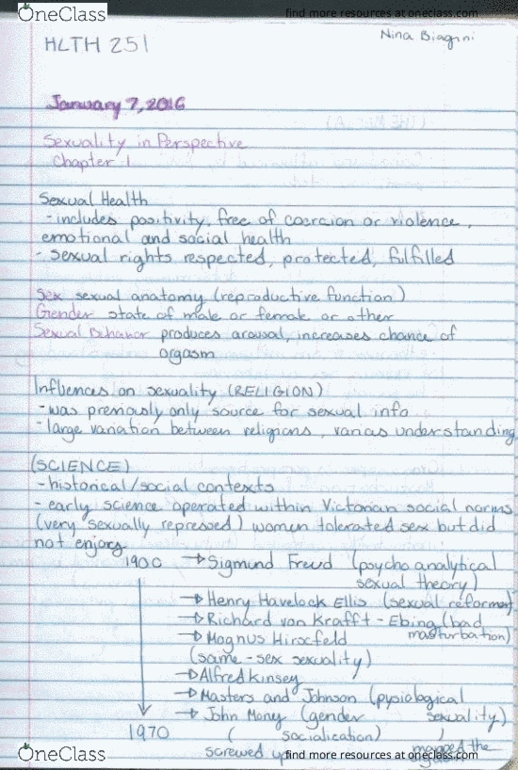 OneClass
find more resources at oneclass.com
HLTH 251
Nina Biagini
January 7, 2016
Sexuality in Perspective
Chapter 1
Sexual Health
- includes positivity, free of coercion or violence,
emotional and social health
- sexual rights respected, protected, fulfilled
Sex sexual anatomy (reproductive function)
Gender state of male or female or other
Sexual Behavior produces arousal, increases chance of
orgasm
Influences on sexuality (RELIGION)
- was previously only source for sexual info
- large variation between religions, various understanding
(SCIENCE)
- historical/social contexts
- early science operated within Victorian social norms
(very sexually repressed) women tolerated sex but did
not enjoy
1900 → Sigmund Freud (psychoanalytical
sexual theory)
→ Henry Havelock Ellis (sexual reformer)
→ Richard von Krafft-Ebing (bad
masturbation)
→ Magnus Hirscfeld
(same-sex sexuality)
→ Alfred Kinsey
→ Masters and Johnson (pysiological
sexuality)
→ John Money (gender
1970 ( socialication) ) mapped the
screwed up
OneClass
find more resources at oneclass.com